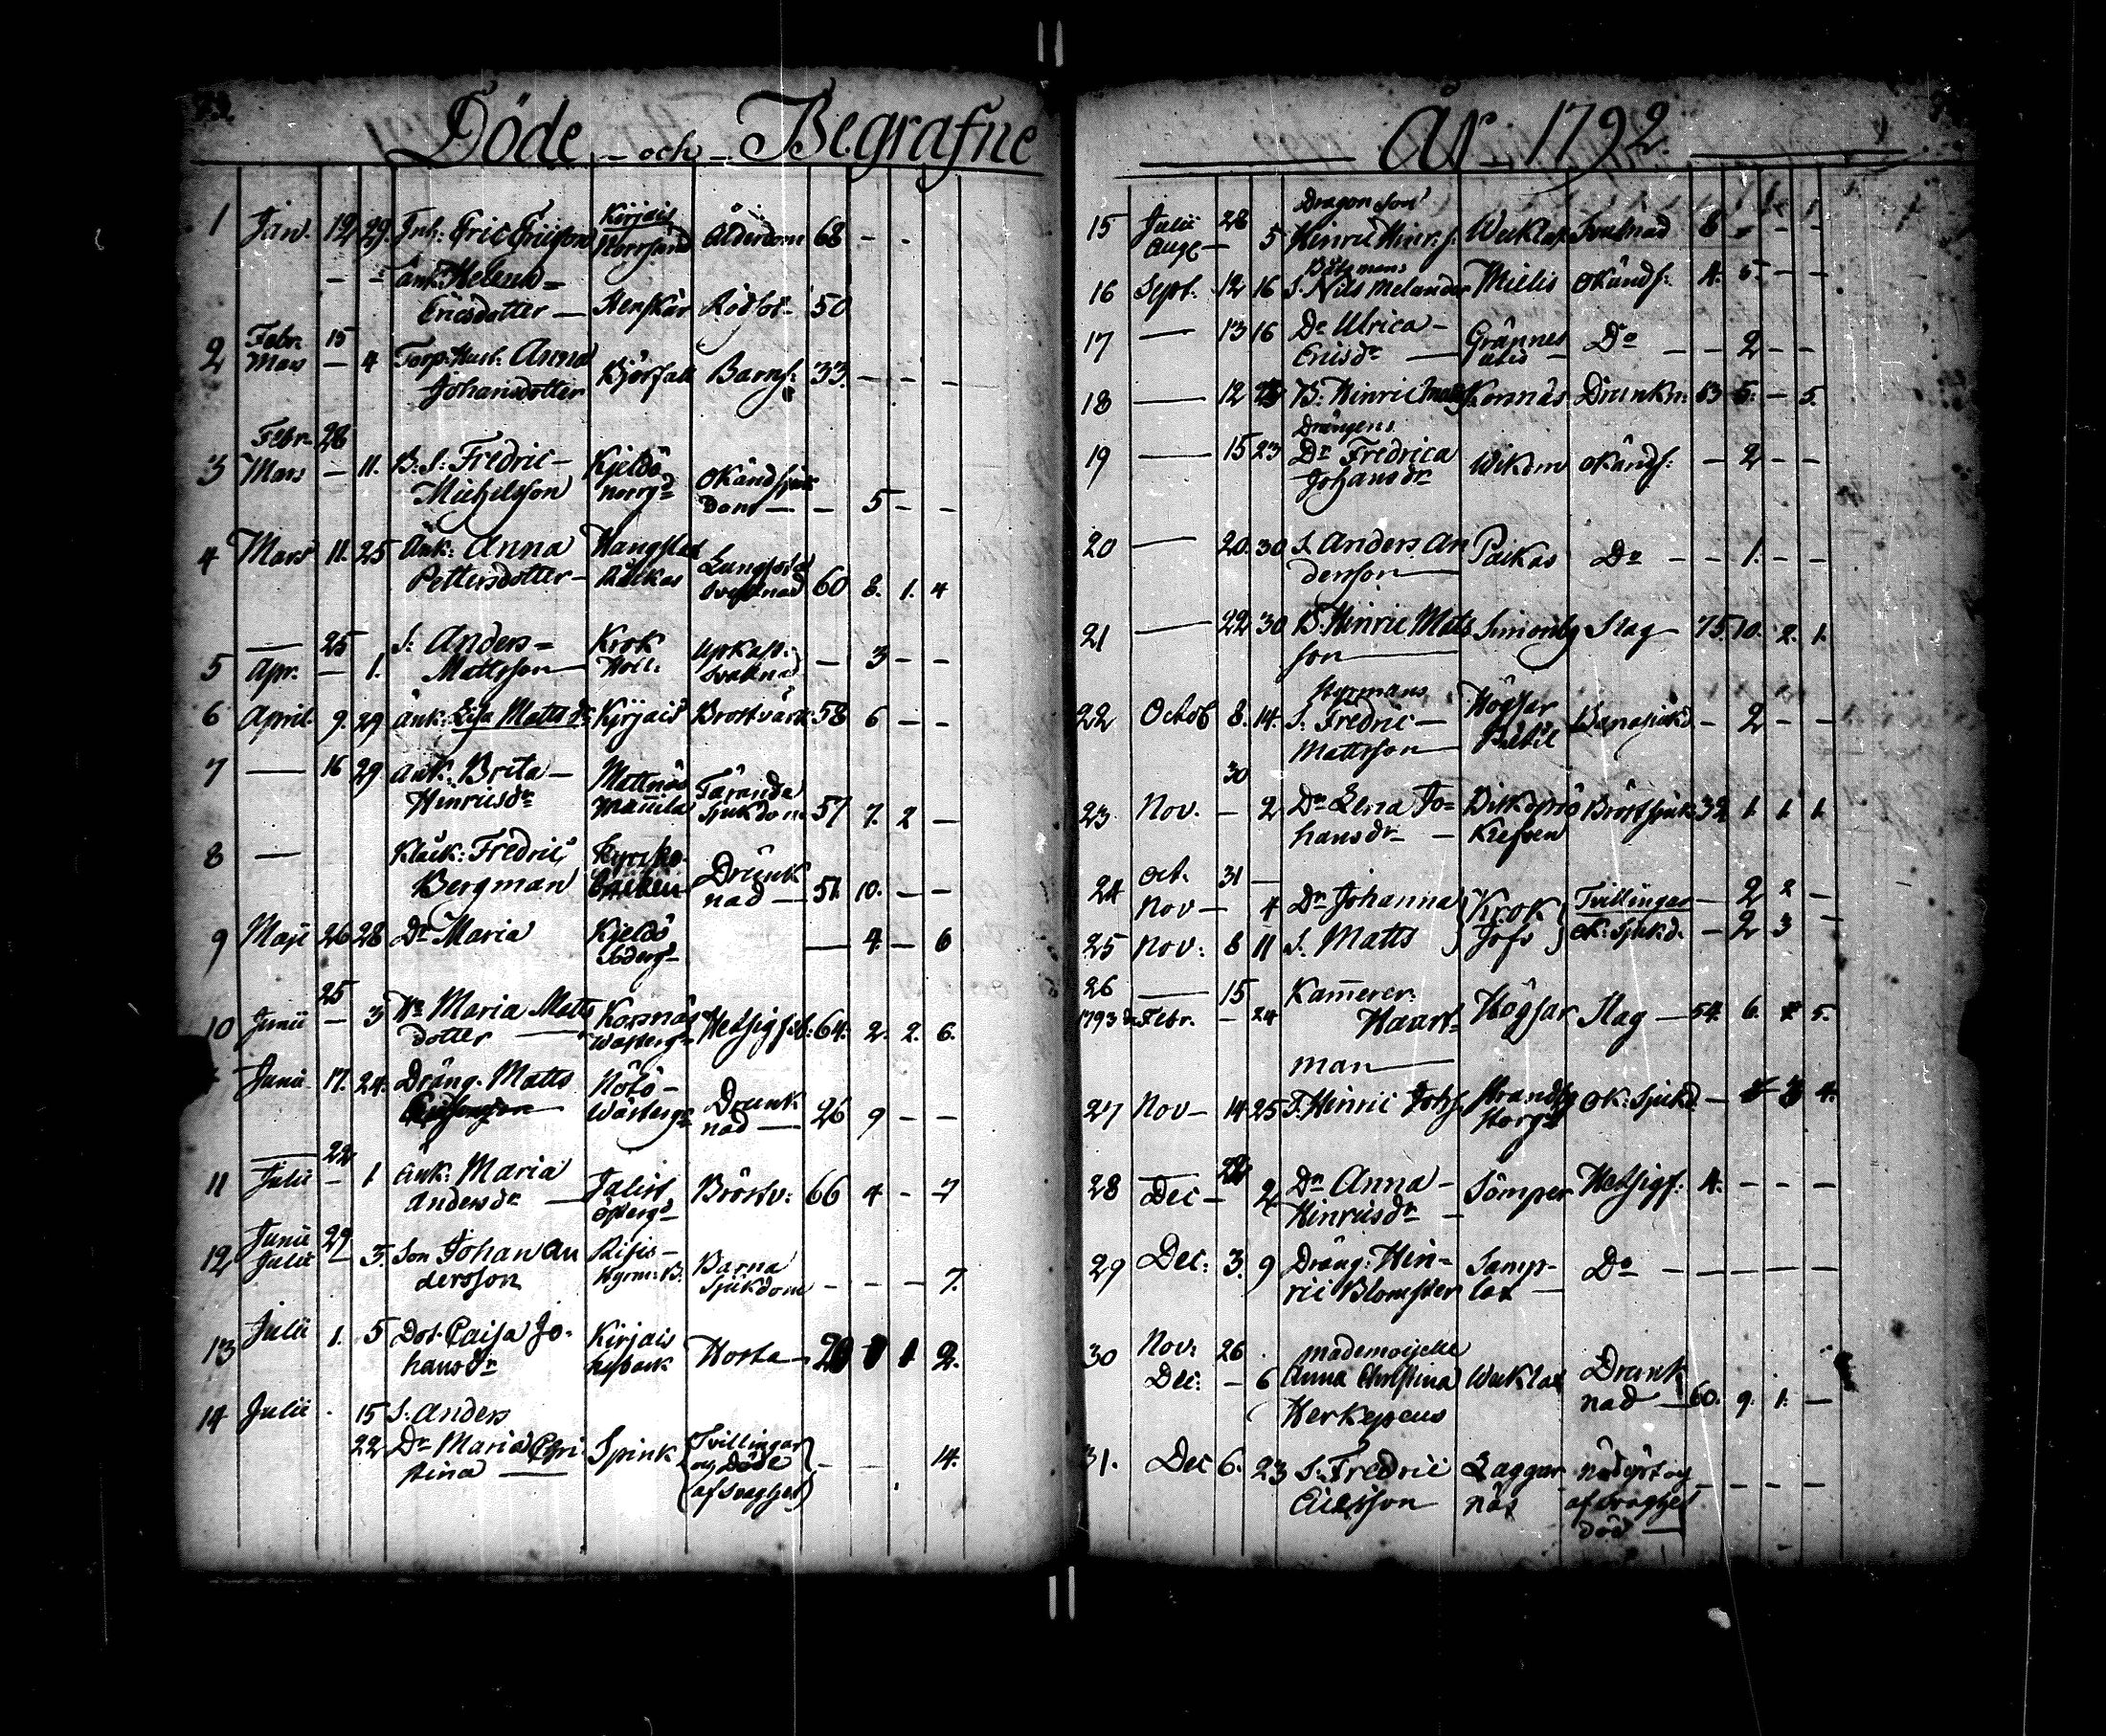 73.
Döde - och - Begrafne
1 Jan. 19 29. Inh: Eric Ericsson Kirjais Norrsund Ålderdom 68 - -
- - änk. Helena Ericsdotter - Benskär Rödsot - 50
Febr. 15
2 Mars - 4 Torp. Hust. Anna Johansdotter Björsall Barns: 33. - - -
Febr. 28
3 Mars - 11. B: S: Fredric Michelsson Kjeldö norrgd okänd sjuk dom - - 5 - -
4 Mars 11. 25 Änk: Anna Pettersdotter - Lungsot 60 8. 1. 4
— 25
5 Apr. - 1. S. Anders Mattsson Krok - 3 - -
6 April 9. 29 Änk: Lisa Matts dr Kirjais Bröstvärk 58 6 - -
7 — 16 29 Änk: Brita Hinricsdr Mattnäs Tärande Sjukdom 57 7. 2 -
8 — Klock: Fredric Bergman Kyrcko backen Drunk nad - 51. 10. - -
9 Maji 26 28 Dr Maria Kjeldö Söderg - 4 - 6
25
10 Junii - 3 Maria Matts dotter Kornäs Wästergd Hetsig feb: 64. 2. 2. 6.
Junii 17. 24. Dräng. Matts Nötö Wästergd Drunk nad - 26 9 - -
— 22
11 Julii - 1 Änk: Maria Andersdr Jalist östergd Bröstv: 66 4 - 7
Junii 29
12 Julii - 3. Son Johan An dersson Risis Barna Sjukdom - - - 7.
13 Julii 1. 5 Dot. Caisa Jo hansdr Kirjais Hosta - 2.
14 Julii 15 S. Anders
22 Dr Maria Chri stina Spink Tvillingar och Döde af svaghet - - 14.
År 1792.
Dragon son
15 Julii 28
Aug - 5 Hinric Hinr: s. Wecklax Svulnad 8 - - -
Båtzmans
16 Sept. 12 16 S. Nils Melander Mielis okänds: 4. 5. - -
17 — 13 16 Dr Ulrica Ericsdr Grännes Do - - 2 - -
18 — 12 B: Hinric Kornnäs Drunkn: 63 5. - 5.
Drängens
19 — 15 23 Dr Fredrica Johansdr Wikom okänds: - 2 - -
20 — 20. 30 S. Anders An dersson Paikas Do - - 1. - -
21 — 22 30 B. Hinric Mats son Simonby Slag - 75. 10. 2. 1.
Styrmans
22 Octob 8. 14. S. Fredric Mattsson Högsar Barnasjukd - 2 - -
30
23 Nov. - 2 Dr Lena Jo hansdr Biskopsö Bröstsjuk 32 1. 1. 1.
Oct. 31 -
24 Nov - 4 Dr Johanna Krok Tvillingar - 2 2 -
25 Nov: 8 11 S. Matts Jofs ok: sjukd. - 2 3 -
26 — 15 Kamerer: Haart man Högsar Slag - 54. 6. 5.
1793 Febr. - 24
27 Nov - 14 25 S. Hinric Johs: Strandby Norgd ok: Sjukd - 4.
— 22
28 Dec - 2 Dr Anna Hinricsdr Sömper Hetsigf: 4. - - -
29 Dec: 3. 9 Dräng: Hin ric Blomster Samp lax Do - - - -
30 Nov: 26 mademoiselle
Dec: - 6 Anna Christina Herkepeus Wecklax Drunk nad - 60. 9. 1. -
31. Dec 6. 23 S. Fredric Ericsson Laggar näs nödöpt och af svaghet död - - - -